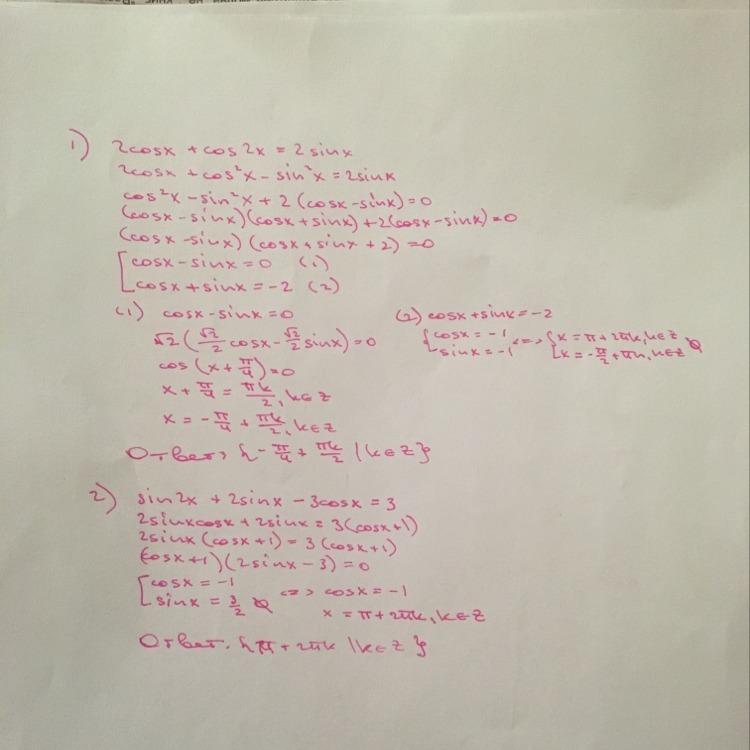 1) 2cosx + cos2x = 2sinx
2cosx + cos²x - sin²x = 2sinx
cos²x - sin²x + 2(cosx - sinx) = 0
(cosx - sinx)(cosx + sinx) + 2(cosx - sinx) = 0
(cosx - sinx)(cosx + sinx + 2) = 0
[ cosx - sinx = 0 (1)
cosx + sinx = -2 (2)
(1) cosx - sinx = 0
√2(√2/2 cosx - √2/2 sinx) = 0
cos(x + π/4) = 0
x + π/4 = πk/2, k∈Z
x = -π/4 + πk/2, k∈Z
(2) cosx + sinx = -2
{ cosx = -1 <=> { x = π + 2πk, k∈Z
sinx = -1 x = -π/2 + πn, n∈Z ∅
Ответ: {-π/4 + πk/2 | k∈Z}
2) sin2x + 2sinx - 3cosx = 3
2sinxcosx + 2sinx = 3(cosx+1)
2sinx(cosx+1) = 3(cosx+1)
(cosx+1)(2sinx - 3) = 0
[ cosx = -1 <=> cosx = -1
sinx = 3/2 ∅ x = π + 2πk, k∈Z
Ответ: {π + 2πk | k∈Z}